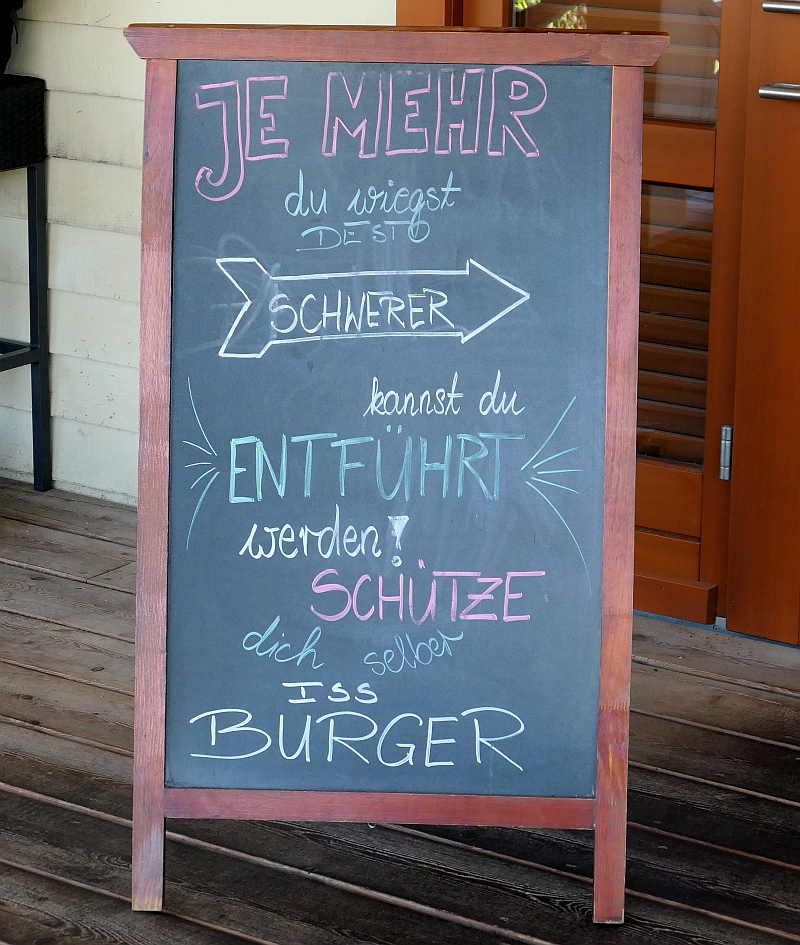 JE MEHR
du wiegst
DESTO
SCHWERER
kannst du
ENTFÜHRT
werden!
SCHÜTZE
dich selber
ISS
BURGER